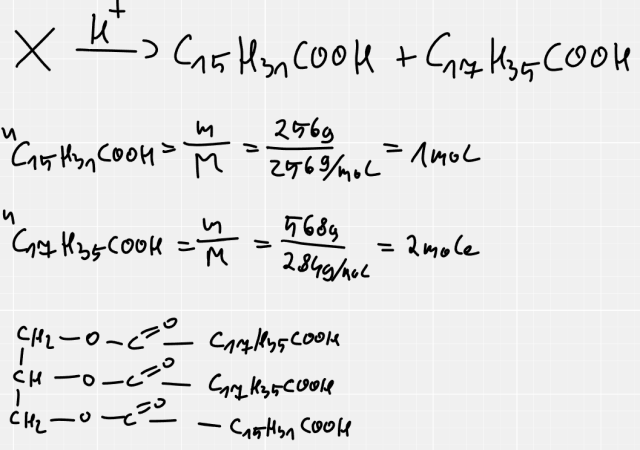 X H⁺→ C₁₅H₃₁COOH + C₁₇H₃₅COOH
n C₁₅H₃₁COOH = m/M = 256g/256g/mol = 1mol
n C₁₇H₃₅COOH = m/M = 568g/284g/mol = 2mole
CH₂ — O — C=O — C₁₇H₃₅COOH
CH — O — C=O — C₁₇H₃₅COOH
CH₂ — O — C=O — C₁₅H₃₁COOH